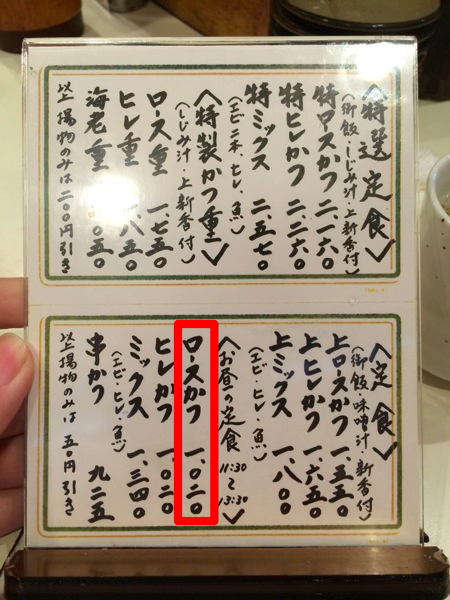 〈特選定食〉
(御飯・しじみ汁・上新香付)
特ロースかつ 二、一六〇
特ヒレかつ 二、二六〇
特ミックス 二、五七〇
(エビ二本、ヒレ、魚)
〈特製かつ重〉
(しじみ汁・上新香付)
ロース重 一、七五〇
ヒレ重 一、八五〇
海老重 二、〇五〇
以上揚物のみは二〇〇円引き
〈定食〉
(御飯・味噌汁・新香付)
上ロースかつ 一、五五〇
上ヒレかつ 一、六五〇
上ミックス 一、八〇〇
(エビ・ヒレ・魚)
〈お昼の定食 11:30〜13:30〉
ロースかつ 一、〇二〇
ヒレかつ 一、〇二〇
ミックス 一、三四〇
(エビ・ヒレ・魚)
串かつ 九二五
以上揚物のみは五〇円引き